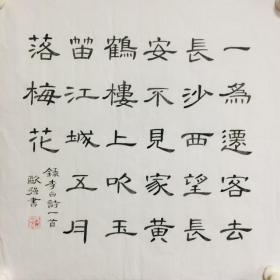 一為遷客去
長沙西望長
安不見家黃
鶴樓上吹玉
笛江城五月
落梅花
錄李白詩一首
歐強書